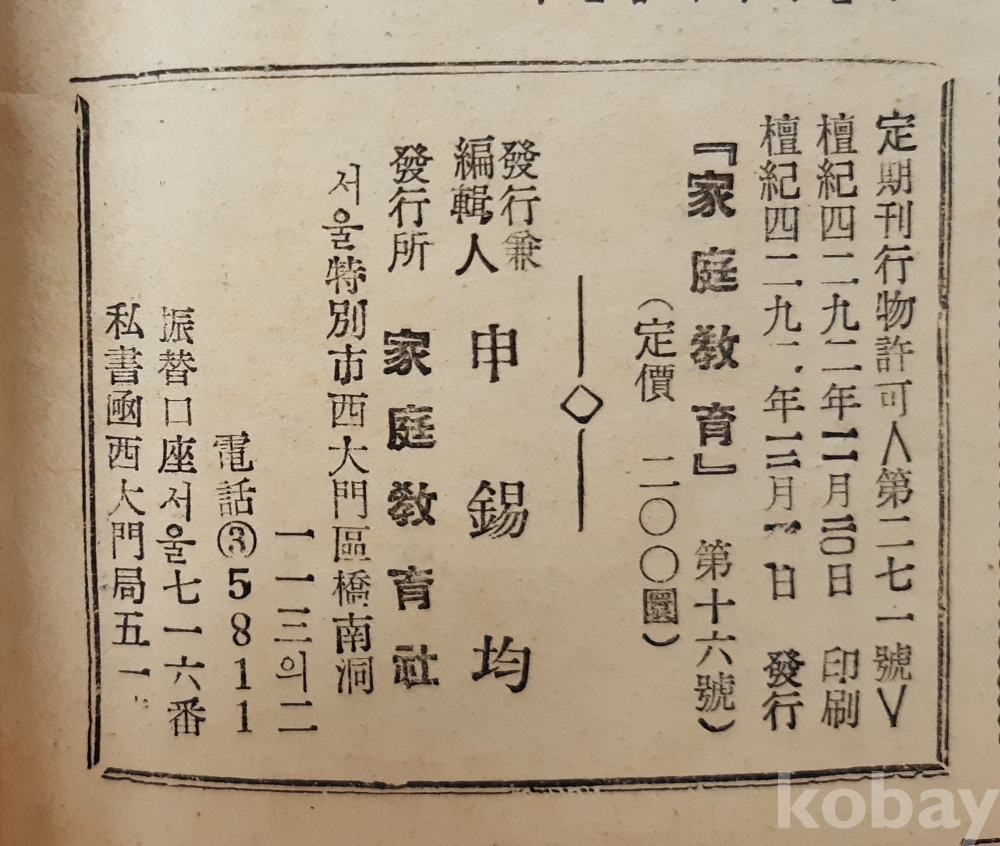 定期刊行物許可〈第二七一號〉
檀紀四二九二年 月 日 印刷
檀紀四二九二年 月 日 發行
『家庭敎育』 第十六號)
(定價 二〇〇圜)
發行兼
編輯人 申錫均
發行所 家庭敎育社
서울特別市西大門區橋南洞
一一三의二
電話③5811
振替口座서울七一六番
私書凾西大門局五一
kobay